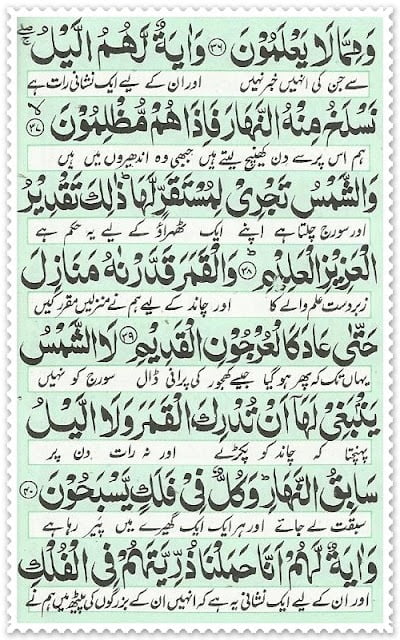 وَمِمَّا لَا يَعْلَمُوْنَ ﴿۳۶﴾ وَاٰيَةٌ لَّهُمُ الَّيْلُ
سے جن کی انہیں خبر نہیں اور ان کے لیے ایک نشانی رات ہے
نَسْلَخُ مِنْهُ النَّهَارَ فَاِذَا هُمْ مُّظْلِمُوْنَ ﴿۳۷﴾
ہم اس پر سے دن کھینچ لیتے ہیں جبھی وہ اندھیروں میں ہیں
وَالشَّمْسُ تَجْرِيْ لِمُسْتَقَرٍّ لَّهَا ؕ ذٰلِكَ تَقْدِيْرُ
اور سورج چلتا ہے اپنے ایک ٹھہراؤ کے لیے یہ حکم ہے
الْعَزِيْزِ الْعَلِيْمِ ﴿۳۸﴾ؕ وَالْقَمَرَ قَدَّرْنٰهُ مَنَازِلَ
زبردست علم والے کا اور چاند کے لیے ہم نے منزلیں مقرر کیں
حَتّٰى عَادَ كَالْعُرْجُوْنِ الْقَدِيْمِ ﴿۳۹﴾ لَا الشَّمْسُ
یہاں تک کہ پھر ہو گیا جیسے کھجور کی پرانی ڈال سورج کو نہیں
يَنْۢبَغِيْ لَهَاۤ اَنْ تُدْرِكَ الْقَمَرَ وَلَا الَّيْلُ
پہنچتا کہ چاند کو پکڑ لے اور نہ رات دن پر
سَابِقُ النَّهَارِ ؕ وَكُلٌّ فِيْ فَلَكٍ يَّسْبَحُوْنَ ﴿۴۰﴾
سبقت لے جائے اور ہر ایک ایک گھیرے میں پیر رہا ہے
وَاٰيَةٌ لَّهُمْ اَنَّا حَمَلْنَا ذُرِّيَّتَهُمْ فِي الْفُلْكِ
اور ان کے لیے ایک نشانی یہ ہے کہ انہیں ان کے بزرگوں کی پیٹھ میں ہم نے